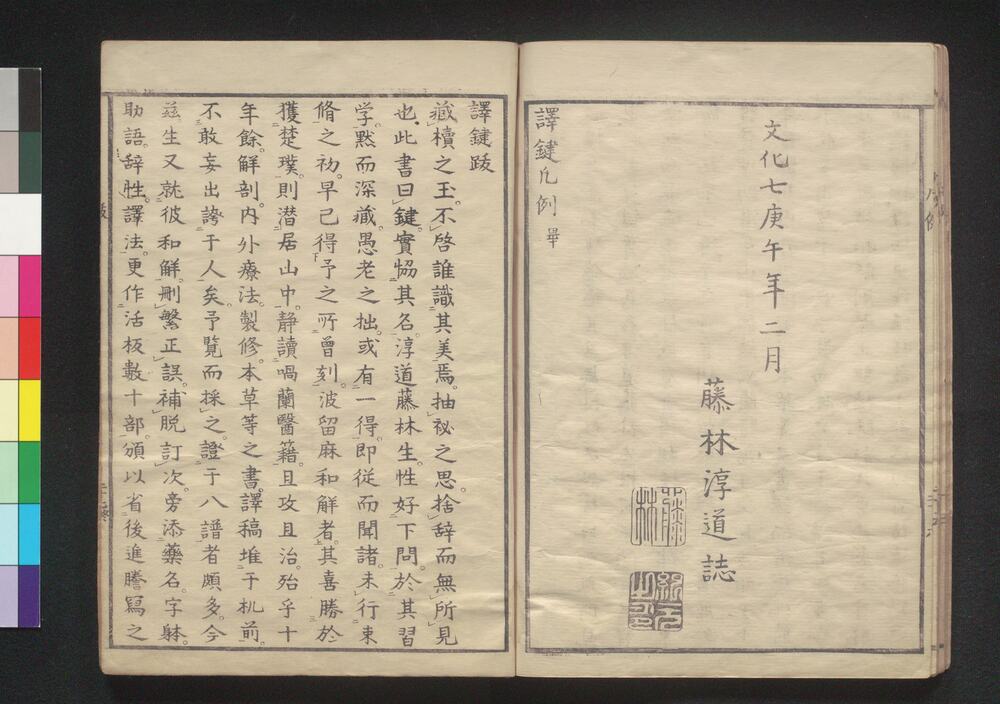 文化七庚午年二月
藤林淳道誌
譯鍵凡例 畢
譯鍵跋
藏櫝之玉。不啓誰識其美焉。抽祕之思。捨辞而無所見
也。此書曰鍵。實恊其名。淳道藤林生。性好下問。於其習
学。黙而深蔵。愚老之拙。或有一得。即從而聞諸。未行東
脩之初。早已得予之所曾刻。波留麻和解者。其喜勝於
獲楚璞。則潜居山中。静讀喎蘭醫籍。且攻且治。殆乎十
年餘。解剖。内外療法。製修。本草等之書。譯稿堆于机前。
不敢妄出誇于人矣。予覧而採之。證于八譜者頗多。今
茲生又就彼和解。刪繁正誤。補脱訂次。旁添藥名。字躰。
助語。辞性。譯法。更作活板數十部。頒以省後進謄寫之